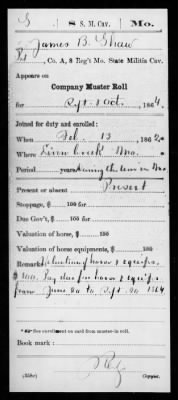 S | 8 S. M. Cav. | Mo.
James B. Shaw
Pvt, Co. A, 8 Reg't Mo. State Militia Cav.
Appears on
Company Muster Roll
for Sept. & Oct., 1864.
Joined for duty and enrolled:
When Feb. 13, 1862.
Where Linn Creek Mo.
Period years during the war in Mo
Present or absent Present
Stoppage, $ 100 for
Due Gov't, $ 100 for
Valuation of horse, $ 100
Valuation of horse equipments, $ 100
Remarks: Valuation of horse & equips.
$100. Pay due for horse & equips
from June 30 to Sept. 30 1864
* See enrollment on card from muster-in roll.
Book mark:
(358c) Copyist.